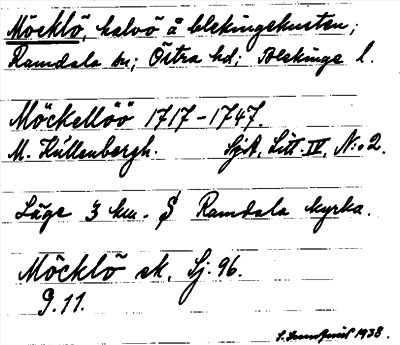 Möcklö, halvö å blekingekusten;
Ramdala sn; Östra hd; Blekinge l.
Möckellöö 1717-1747.
M. Kullenbergh. Sjk. Litt. IV, N:o 2.
Läge 3 km. S Ramdala kyrka.
Möcklö ek. Sj. 96.
9.11.
1938.